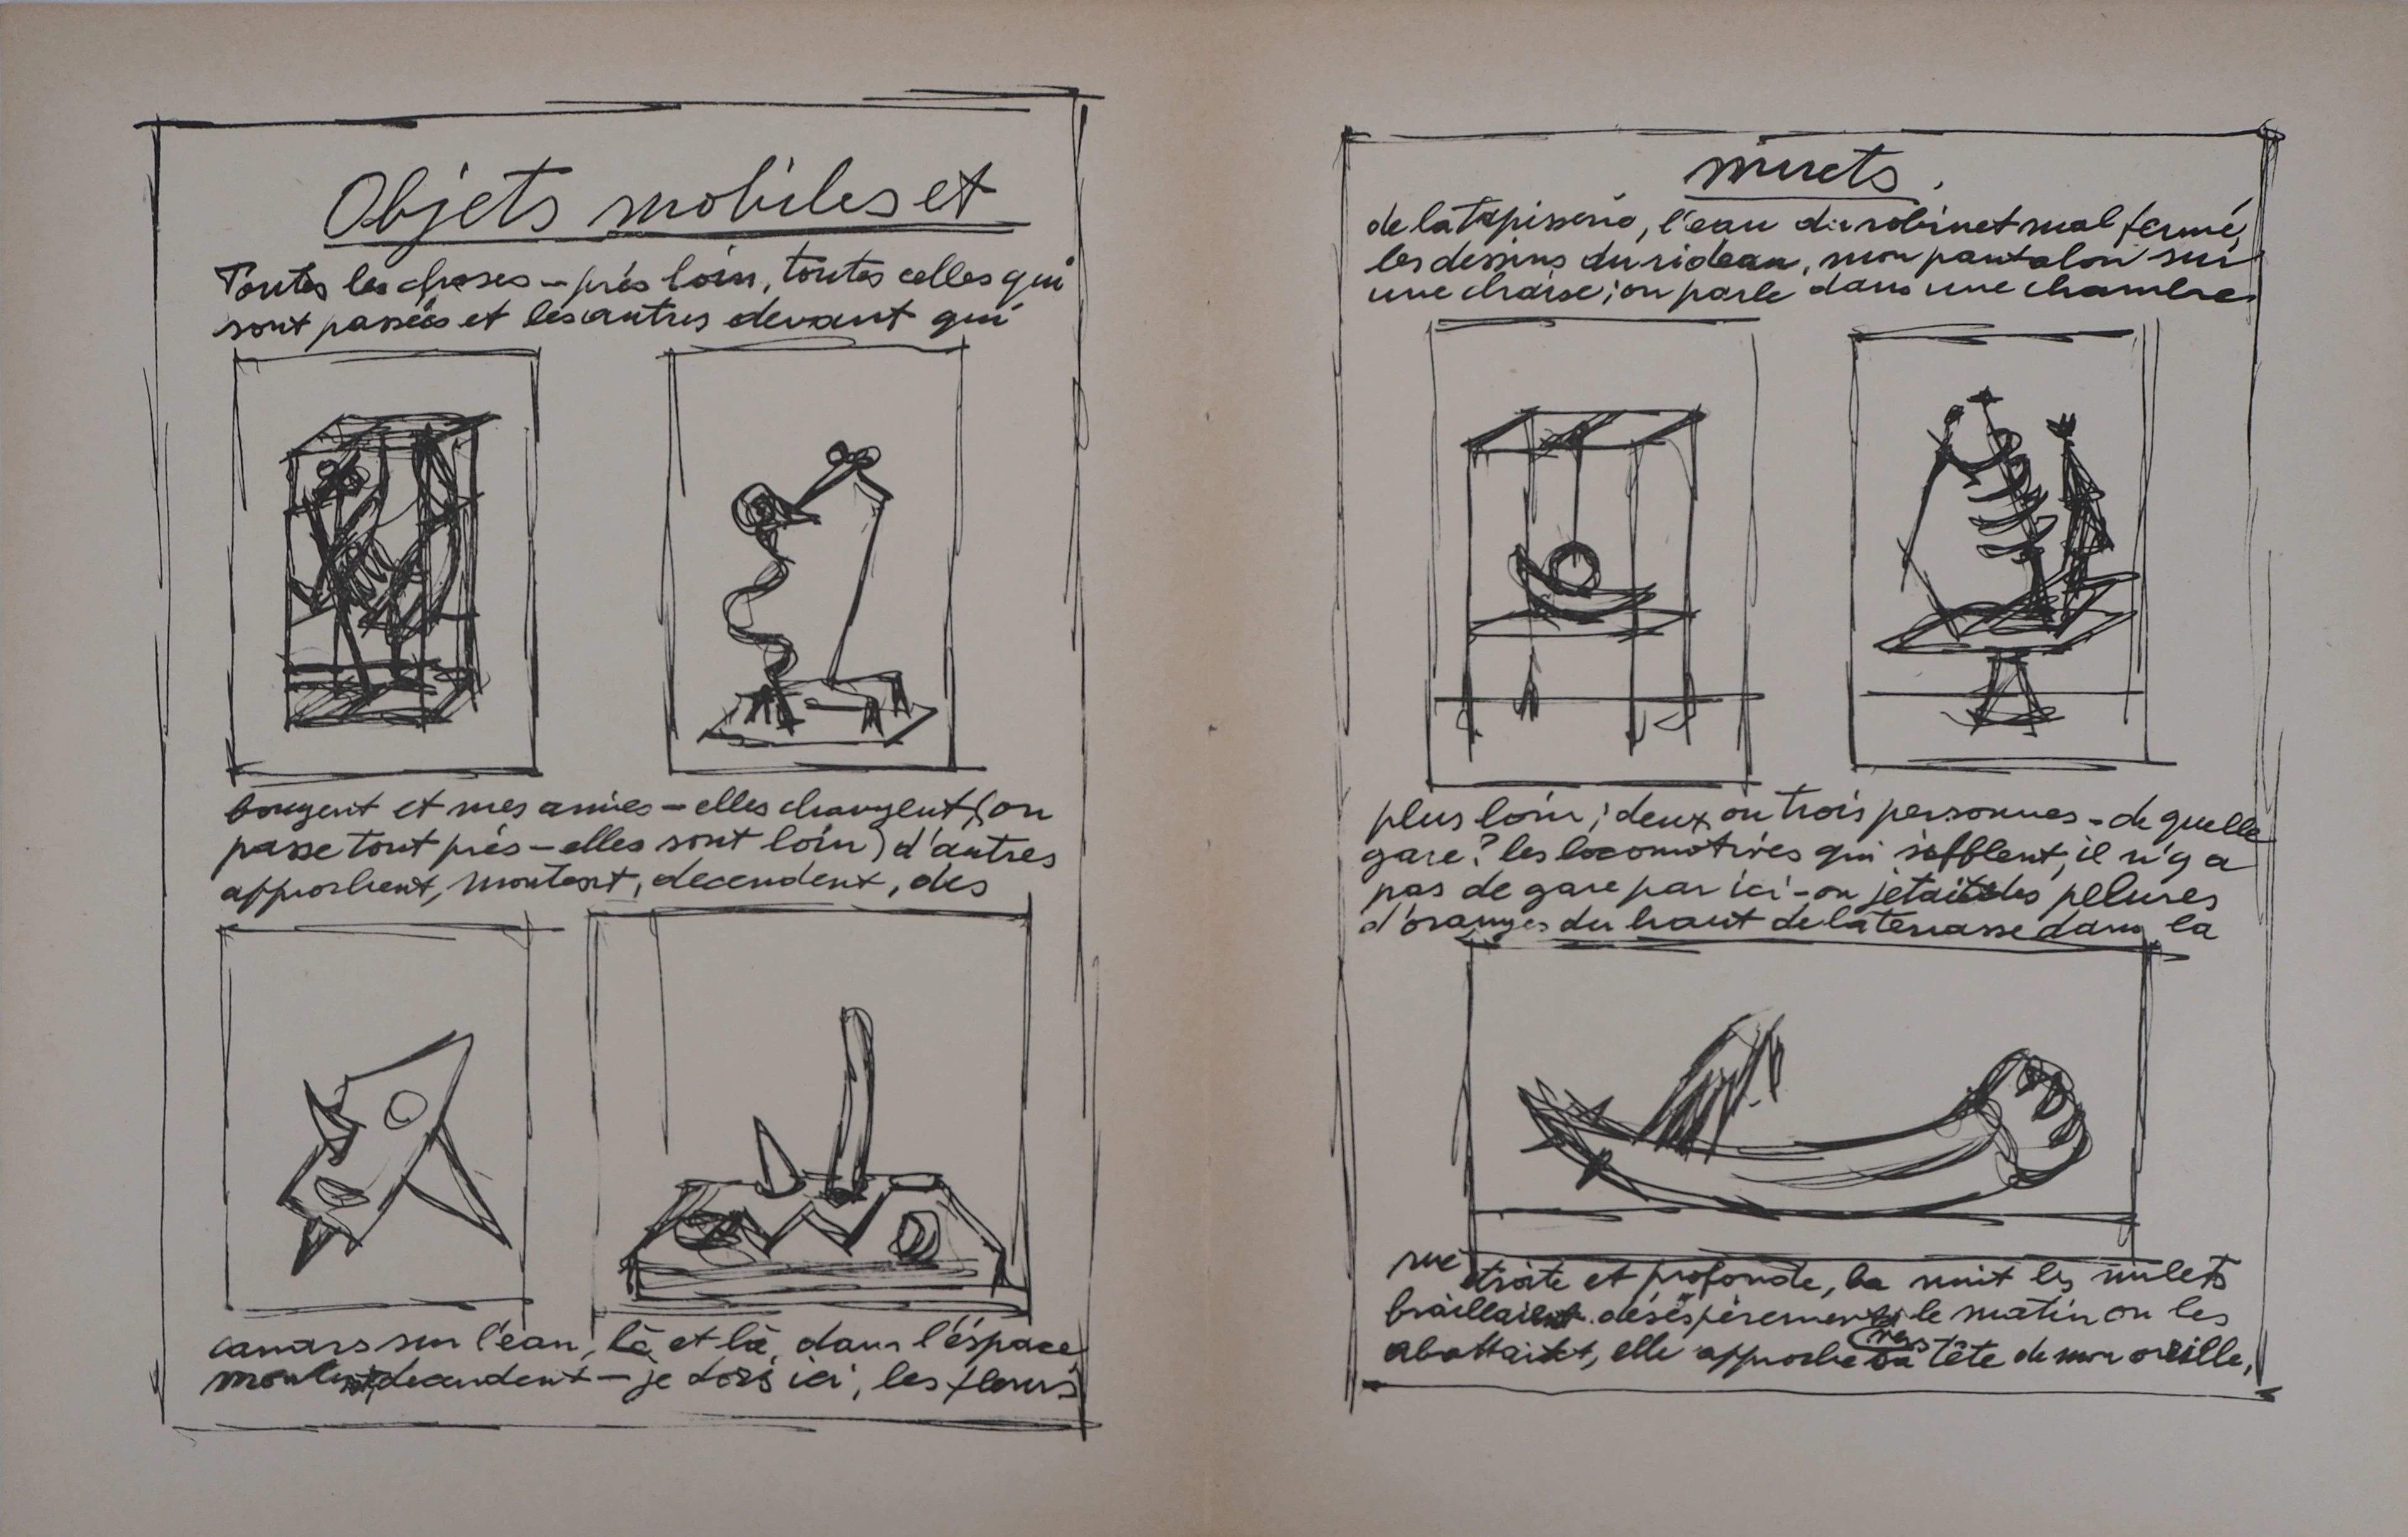 Objets mobiles et
Toutes les choses – près loin, toutes celles qui
sont passées et les autres devant qui
bougent et mes amies – elles changent (on
passe tout près – elles sont loin) d'autres
approchent, montent, decendent, des
canars sur l'eau, là et là, dans l'éspace
montent decendent – je dors ici, les fleurs
muets.
de la tapisserie, l'eau du robinet mal fermé,
les dessins du rideau, mon pantalon sur
une chaise; on parle dans une chambre
plus loin; deux ou trois personnes – de quelle
gare? les locomotives qui sifflent, il n'y a
pas de gare par ici – on jetait des pelures
d'oranges du haut de la terrasse dans la
rue étroite et profonde, la nuit les mulets
braillaient désésperement, le matin on les
abattait, elle approche sa tête de mon oreille,